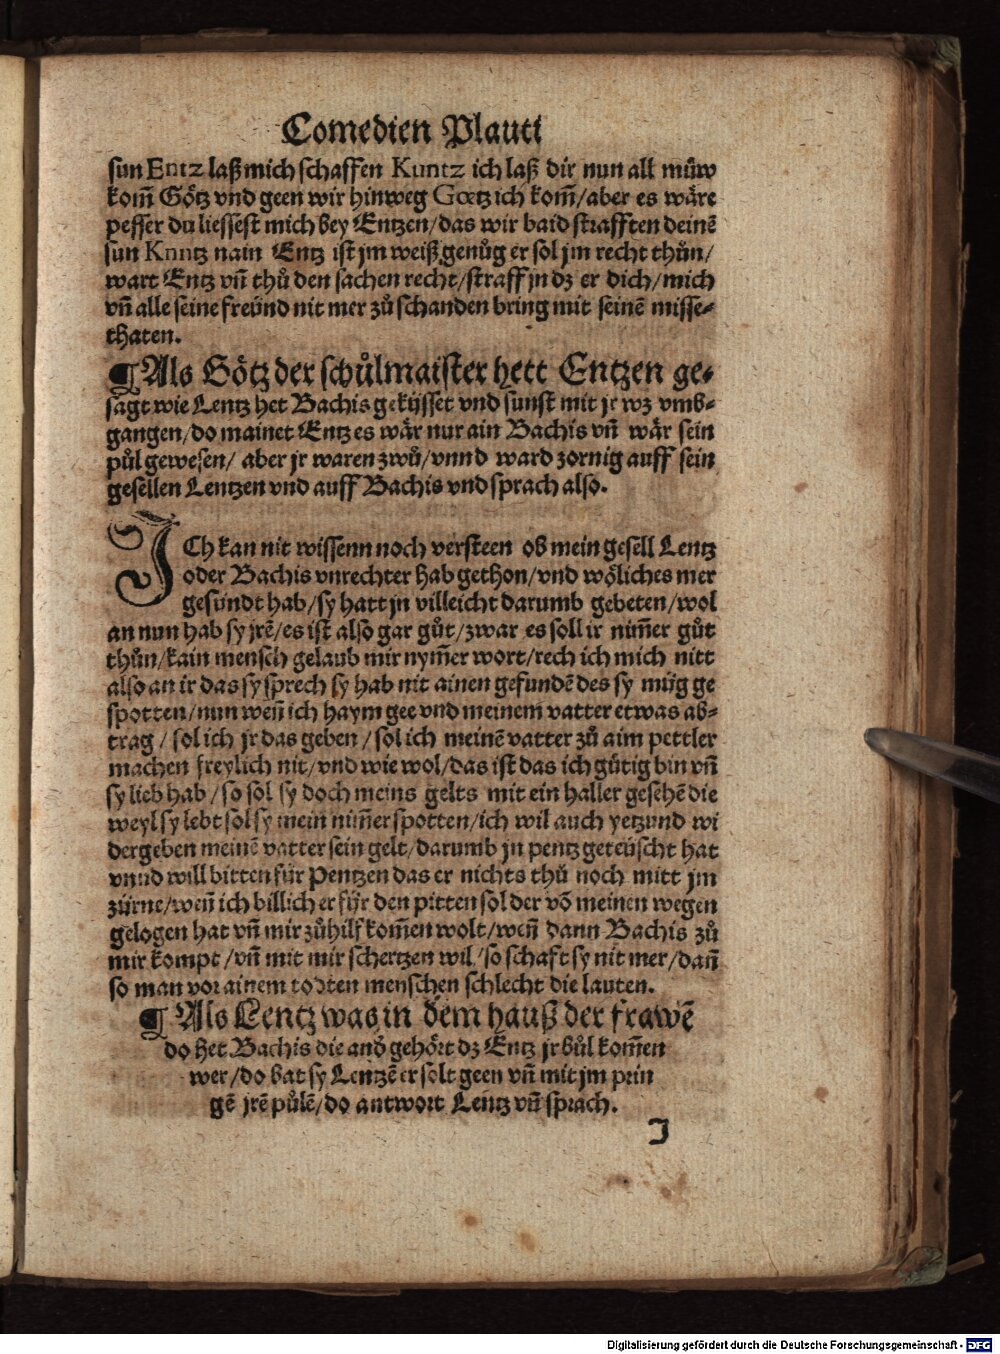 Comedien Plauti
sun Entz laß mich schaffen Kuntz ich laß dir nun all müw
kom̃ Götz vnd geen wir hinweg Gœtz ich kom̃/aber es wäre
pesser du liessest mich bey Entzen/das wir baid strafften deinē
sun Knntz nain Entz ist jm weiß genůg er sol jm recht thůn/
wart Entz vñ thů den sachen recht/straff jn dz er dich/mich
vñ alle seine freünd nit mer zů schanden bring mit seinē misse⸗
thaten.
¶Als Götz der schůlmaister hett Entzen ge⸗
sagt wie Lentz het Bachis gekijsset vnd sunst mit jr wz vmb⸗
gangen/do mainet Entz es wär nur ain Bachis vñ wär sein
půl gewesen/ aber jr waren zwů/vnnd ward zornig auff sein
gesellen Lentzen vnd auff Bachis vnd sprach also.
ICh kan nit wissenn noch versteen ob mein gesell Lentz
oder Bachis vnrechter hab gethon/vnd wöliches mer
gesündt hab/sy hatt jn villeicht darumb gebeten/wol
an nun hab sy jrē/es ist also gar gůt/zwar es soll ir nim̃er gůt
thůn/kain mensch gelaub mir nym̃er wort/rech ich mich nitt
also an ir das sy sprech sy hab nit ainen gefundē des sy müg ge
spotten/nun weñ ich haym gee vnd meinem vatter etwas ab⸗
trag/ sol ich jr das geben/ sol ich meinē vatter zů aim pettler
machen freylich nit/vnd wie wol/das ist das ich gütig bin vñ
sy lieb hab/so sol sy doch meins gelts mit ein haller gesehē die
weyl sy lebt sol sy mein nim̃er spotten/ich wil auch yetzund wi
dergeben meinē vatter sein gelt/darumb jn pentz geteüscht hat
vnnd will bitten für Pentzen das er nichts thů noch mitt jm
zürne/weñ ich billich er für den pitten sol der vō meinen wegen
gelogen hat vñ mir zůhilf kom̃en wolt/weñ dann Bachis zů
mir kompt/vñ mit mir schertzen wil/so schaft sy nit mer/dañ
so man vor ainem todten menschen schlecht die lauten.
¶Als Lentz was in dem hauß der frawē
do het Bachis die and̕ gehört dz Entz jr bůl kom̃en
wer/do bat sy Lentzē er solt geen vñ mit jm prin
gē jrē půlē/do antwort Lentz vñ sprach.
I
Digitalisierung gefördert durch die Deutsche Forschungsgemeinschaft - DFG